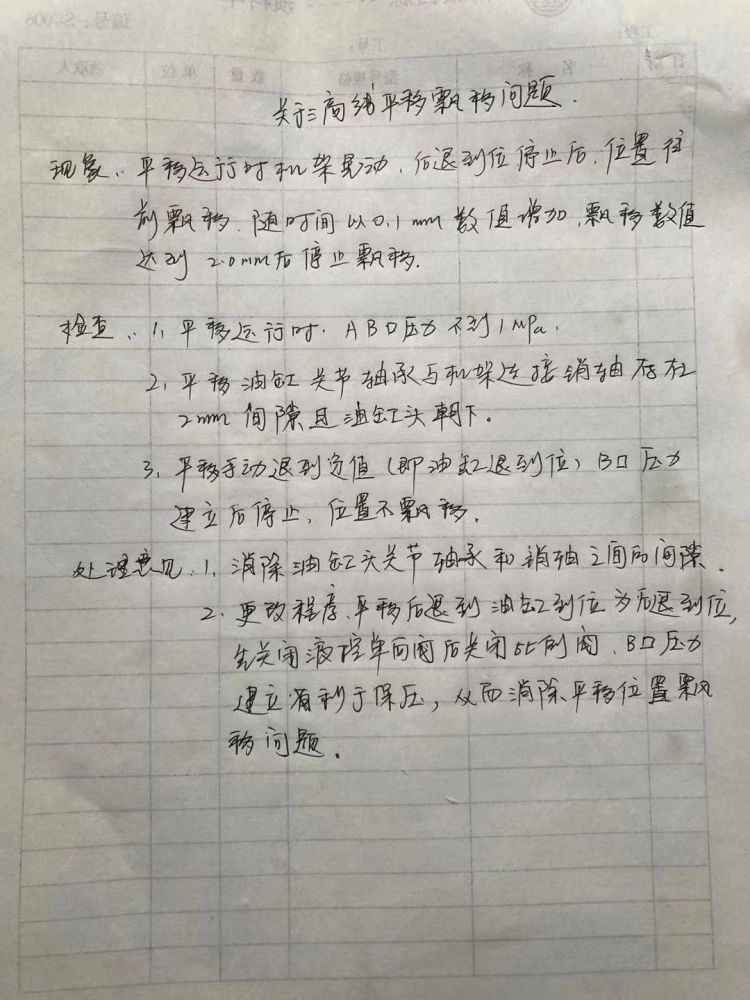 关于三高线平移飘移问题.
现象:. 平移运行时机架晃动.后退到位停止后.位置往
前飘移.随时间以0.1mm数值增加.飘移数值
达到2.0mm后停止飘移.
检查:. 1. 平移运行时. AB口压力不到1MPa.
2. 平移油缸关节轴承与机架连接销轴存在
2mm间隙且油缸头朝下.
3. 平移手动退到受值(即油缸退到位)B口压力
建立后停止,位置不飘移.
处理意见. 1. 消除油缸头关节轴承和销轴之间的间隙.
2. 更改程序.平移后退到油缸到位为后退到位,
先关闭液控单向阀后关闭比例阀.B口压力
建立有利于保压,从而消除平移位置飘
移问题.
编号:
工号:
名称
数量
单位
领取人